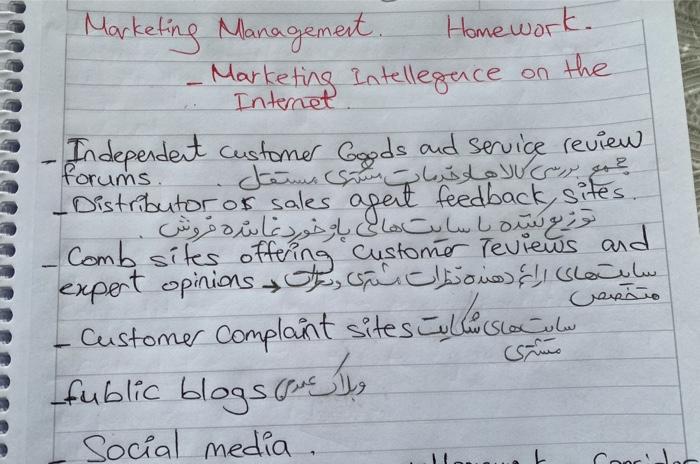 Marketing Management. Homework.
- Marketing Intellegence on the
Internet.
- Independent customer Goods and service review
forums. تجمع بررسی کالاها و خدمات مشتری مستقل
- Distributor or sales agent feedback, sites.
توزیع کننده یا سایت های بازخورد نماینده فروش.
- Comb sites offering customer reviews and
expert opinions → سایت های ارائه دهنده نظرات مشتری و نظرات
متخصص
- Customer Complaint sites سایت های شکایت
مشتری
- fublic blogs وبلاگ عمومی
- Social media.